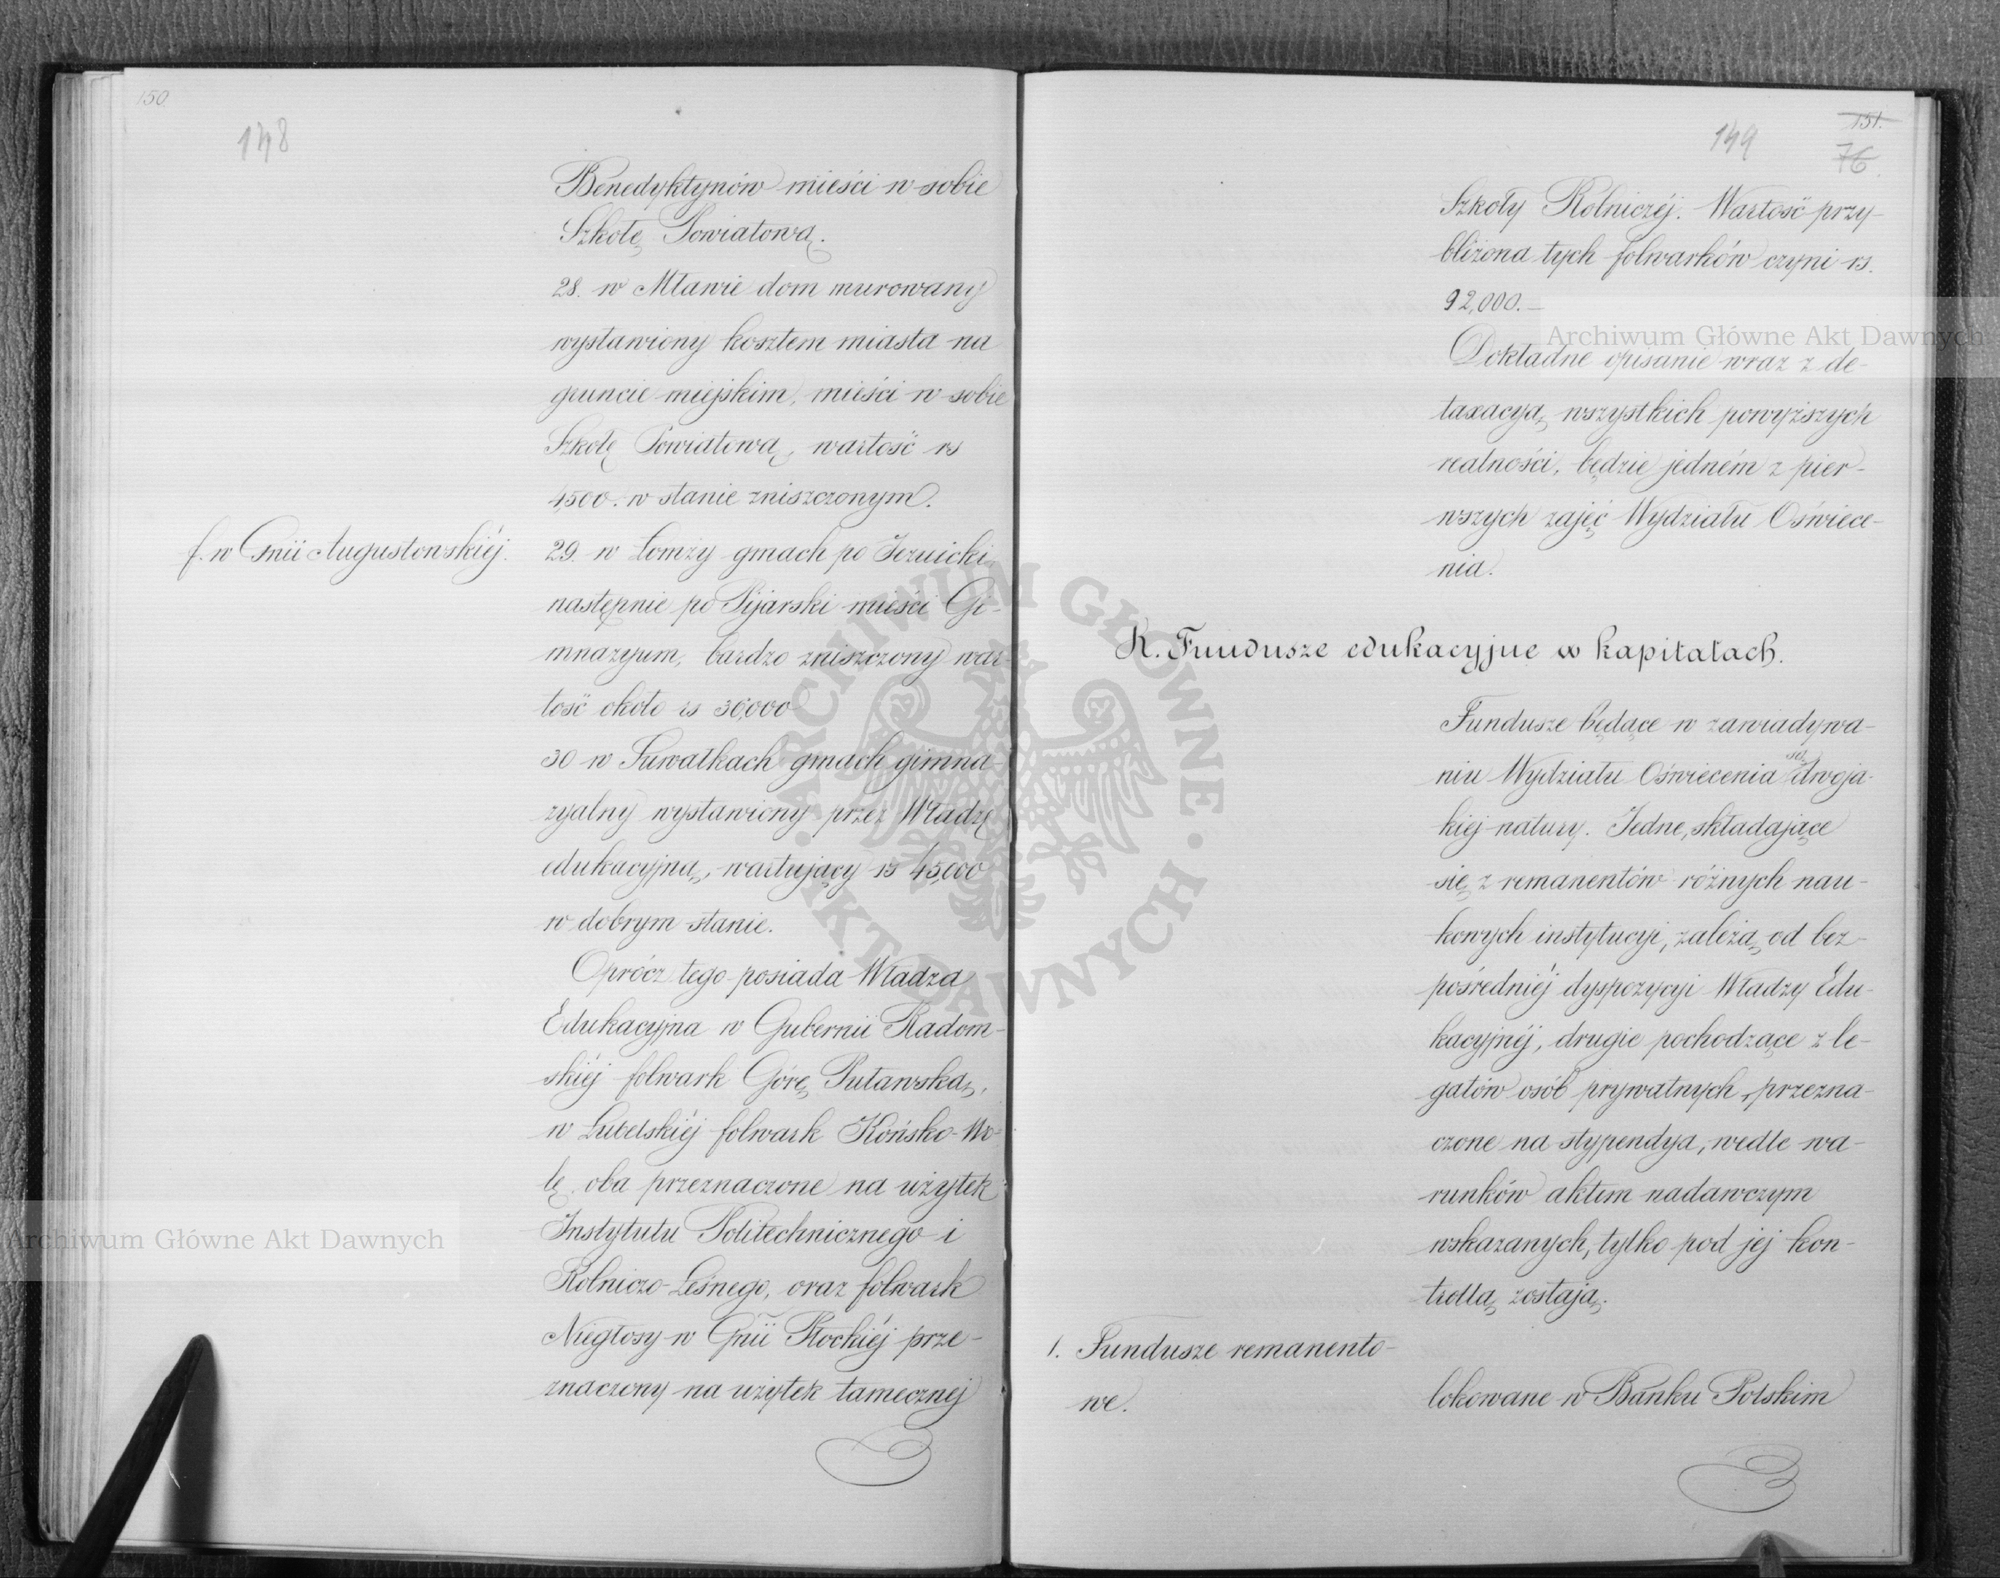 150.
148
Benedyktynów mieści w sobie
Szkołę Powiatową.
28. w Mławie dom murowany
wystawiony kosztem miasta na
gruncie miejskim, mieści w sobie
Szkołę Powiatową, wartość rs
4,500. w stanie zniszczonym.
f. w Gnii Augustowskiéj.
29. w Łomży gmach po Jezuicki,
następnie po Pijarski mieści Gi-
mnazyum, bardzo zniszczony war-
tość około rs 30,000
30 w Suwałkach gmach gimna-
zyalny wystawiony przez Władzę
edukacyjną, wartujący rs 45,000
w dobrym stanie.
Oprócz tego posiada Władza
Edukacyjna w Gubernii Radom-
skiéj folwark Górę Puławską,
w Lubelskiéj folwark Końsko-Wo-
lę, oba przeznaczone na użytek
Instytutu Politechnicznego i
Rolniczo-Leśnego, oraz folwark
Niegłosy w Gnii Płockiéj prze-
znaczony na użytek tamecznej
149
151.
76.
Szkoły Rolniczéj. Wartość przy-
bliżona tych folwarków czyni rs.
92,000.—
Dokładne opisanie wraz z de-
taxacyą wszystkich powyższych
realności, będzie jedném z pier-
wszych zajęć Wydziału Oświece-
nia.
K. Fundusze edukacyjne w kapitałach.
Fundusze będące w zawiadywa-
niu Wydziału Oświecenia są dwoja-
kiej natury. Jedne, składające
się z remanentów różnych nau-
kowych instytucyi, zależą od bez-
pośredniéj dyspozycyi Władzy Edu-
kacyjnéj, drugie pochodzące z le-
gatów osób prywatnych, przezna-
czone na stypendya, wedle wa-
runków aktem nadawczym
wskazanych, tylko pod jej kon-
trollą zostają.
1. Fundusze remanento-
we.
lokowane w Banku Polskim
Archiwum Główne Akt Dawnych
Archiwum Główne Akt Dawnych
ARCHIWUM GŁÓWNE · AKT DAWNYCH ·